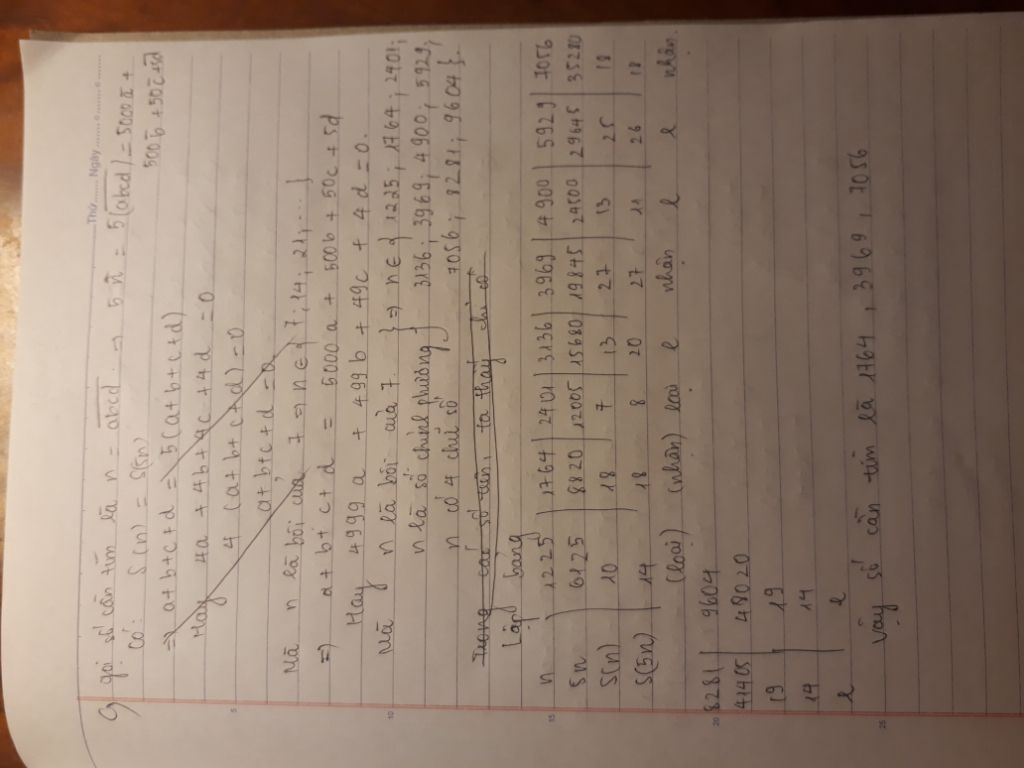 Thứ ........ Ngày ........
gọi số cần tìm là n = abcd → 5n = 5(abcd) = 5000a +
500b + 50c + 5d
có: S(n) = S(5n)
=> a+b+c+d = 5(a+b+c+d)
Hay 4a + 4b + 4c + 4d = 0
4 (a+b+c+d) = 0
a+b+c+d = 0
Mà n là bội của 7 => n ∈ { 7; 14; 21; .... }
=> a + b + c + d = 5000a + 500b + 50c + 5d
Hay 4999 a + 499 b + 49c + 4d = 0.
Mà n là bội của 7. } => n ∈ { 1225; 1764; 2401;
n là số chính phương } 3136; 3969; 4900; 5929;
n có 4 chữ số 7056; 8281; 9604 }.
Trong các số trên, ta thấy chỉ có
Lập bảng
n | 1225 | 1764 | 2401 | 3136 | 3969 | 4900 | 5929 | 7056
5n | 6125 | 8820 | 12005 | 15680 | 19845 | 24500 | 29645 | 35280
S(n) | 10 | 18 | 7 | 13 | 27 | 13 | 25 | 18
S(5n) | 14 | 18 | 8 | 20 | 27 | 11 | 26 | 18
(loại) (nhận) loại l nhận l l nhận.
8281 | 9604
41405 | 48020
19 | 19
14 | 14
l | l
Vậy số cần tìm là 1764, 3969, 7056